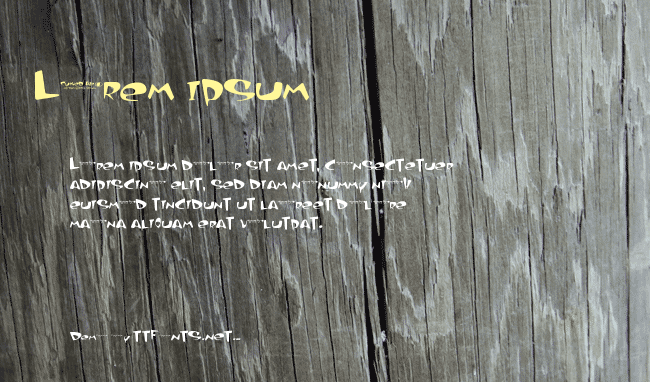 Lorem ipsum
Lorem ipsum dolor sit amet, consectetuer
adipiscing elit, sed diam nonummy nibh
euismod tincidunt ut laoreet dolore
magna aliquam erat volutpat.
Demo by TTFonts.net...